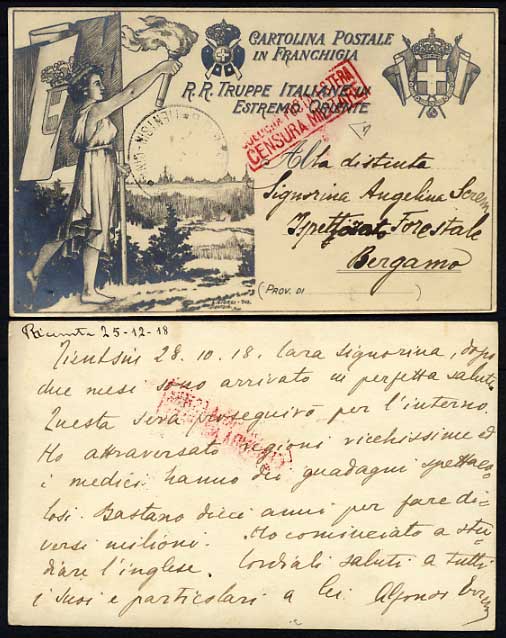 CARTOLINA POSTALE
IN FRANCHIGIA
R.R. TRUPPE ITALIANE IN
ESTREMO ORIENTE
CENSURA MILITARE
TIENTSIN
Alla distinta
Signorina Angelina
Ispettorato Forestale
Bergamo
(PROV. DI )
Ricevuta 25-12-18
Tientsin 28.10.18. Cara Signorina, dopo
due mesi sono arrivato in perfetta salute
Questa sera proseguirò per l'interno.
Ho attraversato regioni ricchissime ed
i medici hanno dei guadagni spettaco=
losi. Bastano dieci anni per fare di=
versi milioni. Ho cominciato a stu=
diare l'inglese. Cordiali saluti a tutti
i suoi e particolari a lei. Alfonso